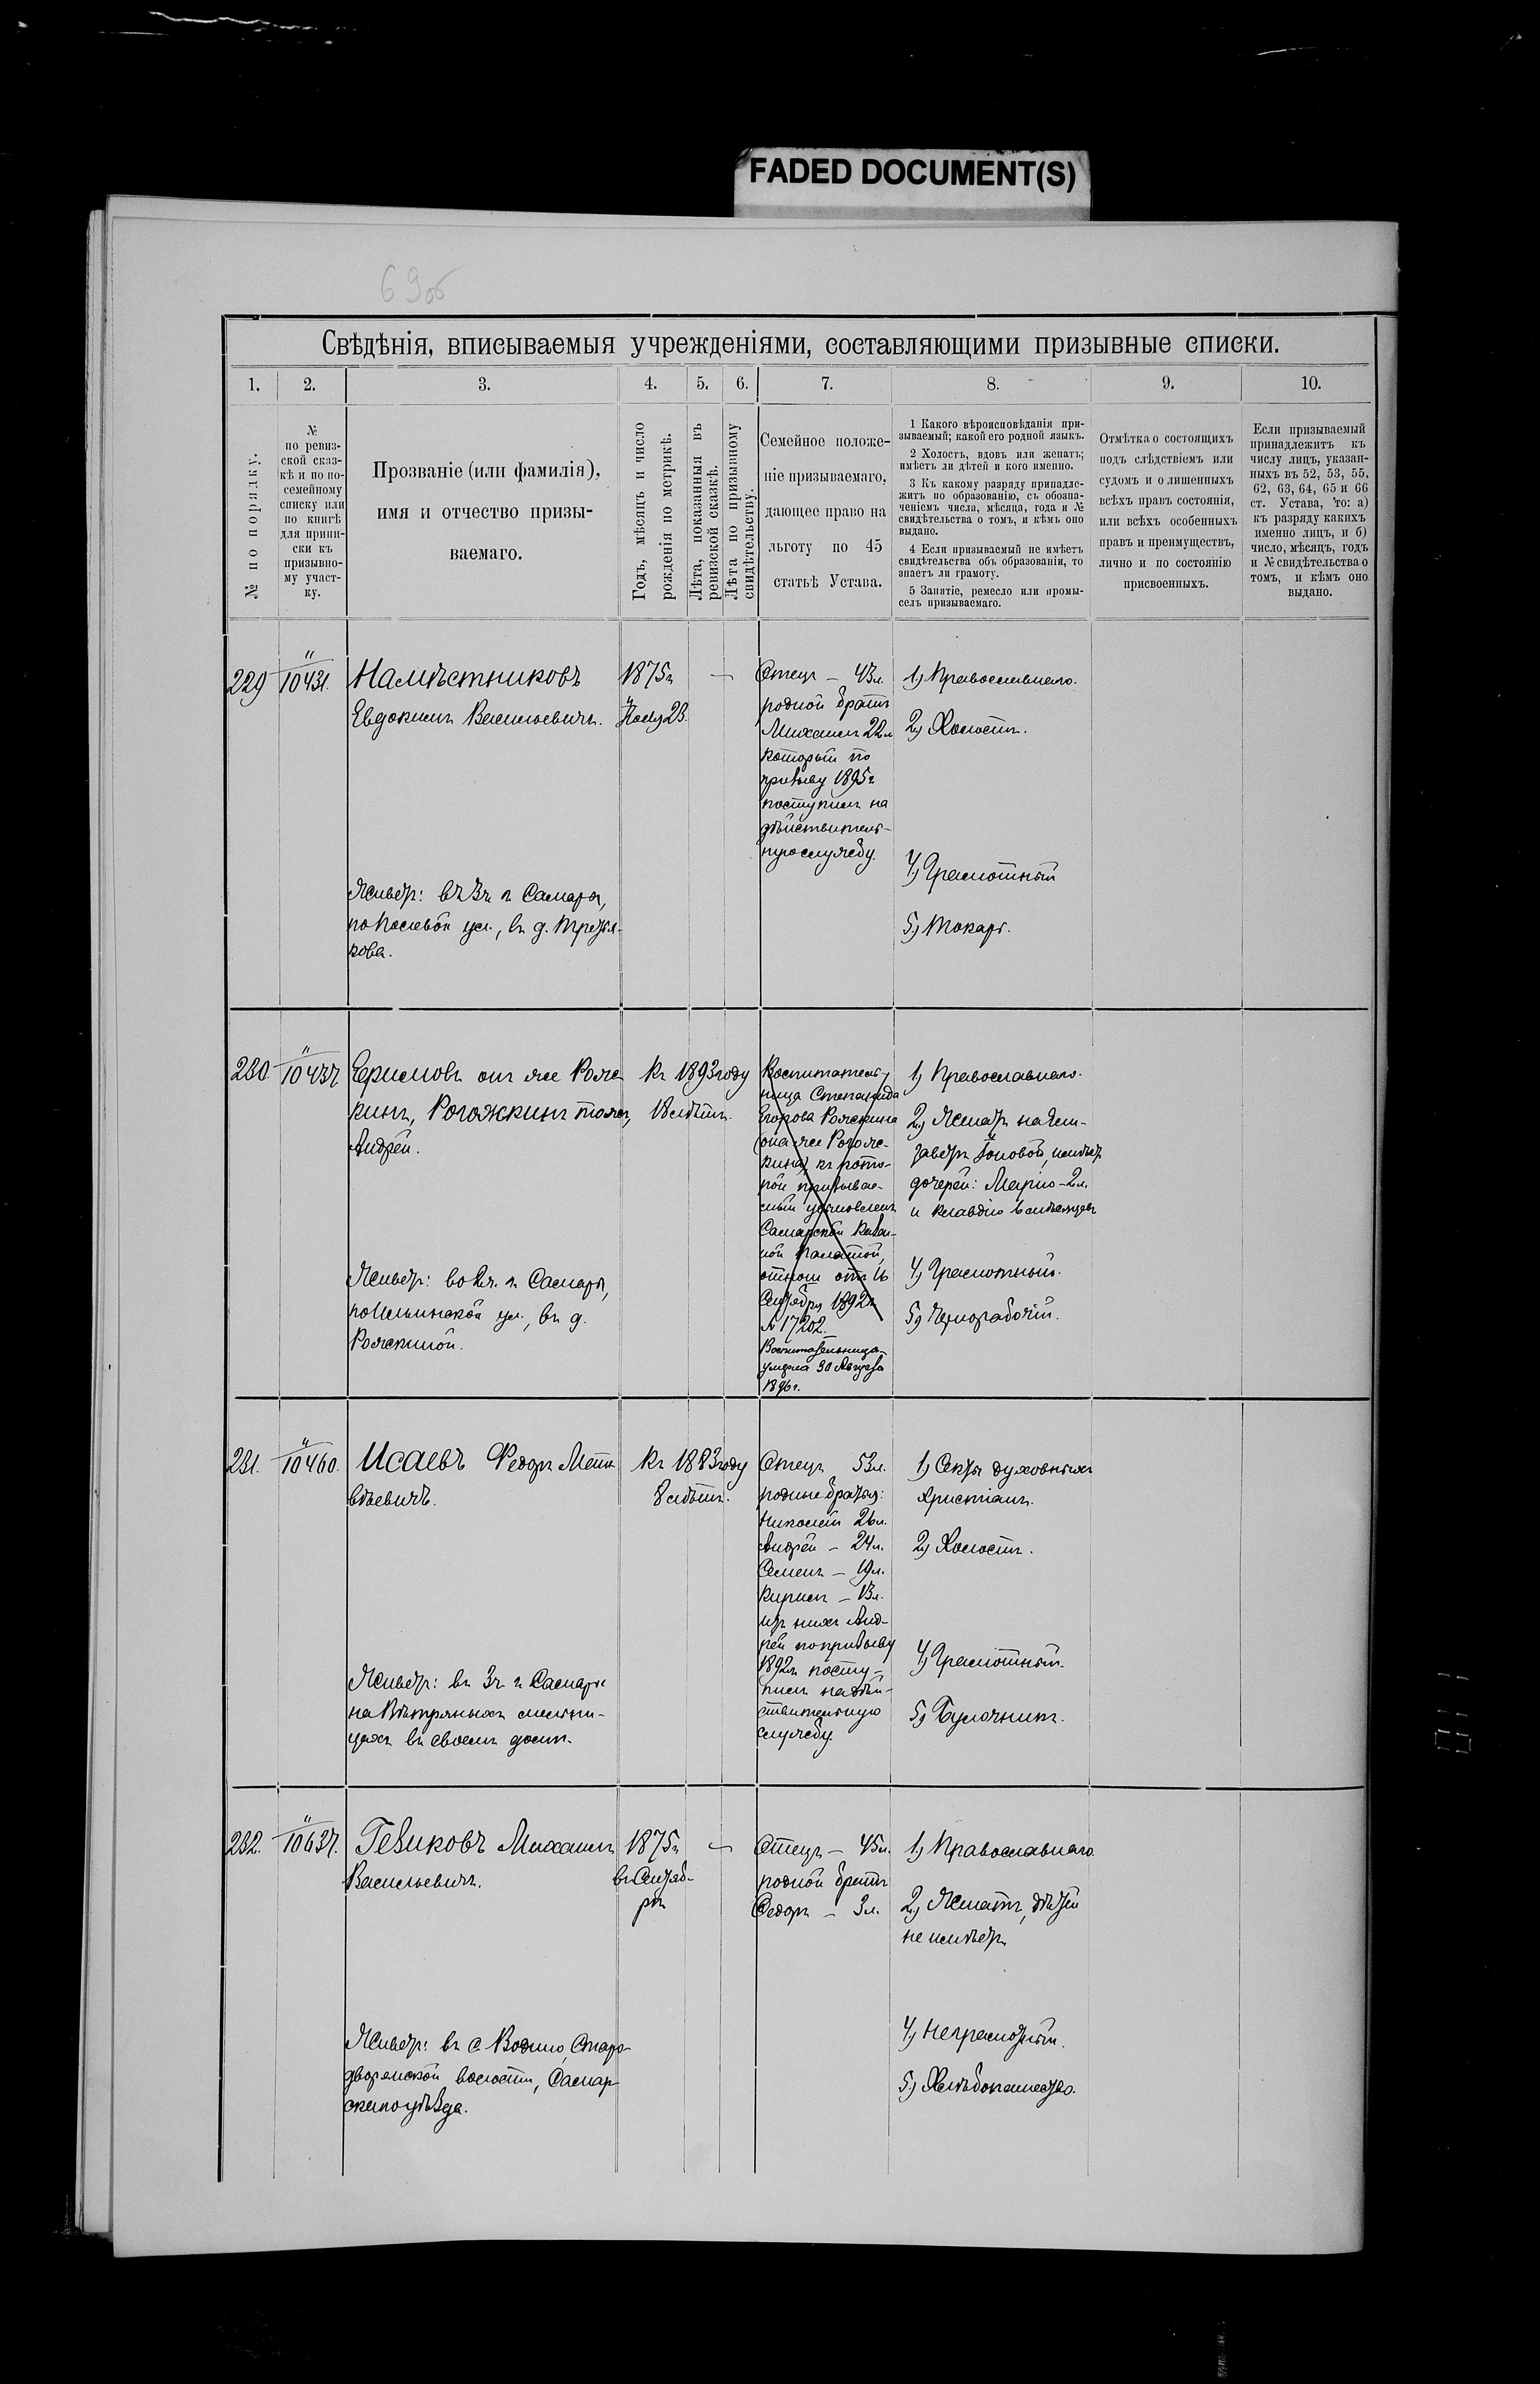 FADED DOCUMENT(S)
69об
Свѣдѣнія, вписываемыя учрежденіями, составляющими призывные списки.
1.
2.
3.
4.
5.
6.
7.
8.
9.
10.
№ по порядку.
№
по ревиз-
ской сказ-
кѣ и по по-
семейному
списку или
по книгѣ
для припи-
ски къ
призывно-
му участ-
ку.
Прозваніе (или фамилія),
имя и отчество призы-
ваемаго.
Годъ, мѣсяцъ и число
рожденія по метрикѣ.
Лѣта, показанныя въ
ревизской сказкѣ.
Лѣта по призывному
свидѣтельству.
Семейное положе-
ніе призываемаго,
дающее право на
льготу по 45
статьѣ Устава.
1 Какого вѣроисповѣданія при-
зываемый; какой его родной языкъ.
2 Холостъ, вдовъ или женатъ;
имѣетъ ли дѣтей и кого именно.
3 Къ какому разряду принадле-
житъ по образованію, съ обозна-
ченіемъ числа, мѣсяца, года и №
свидѣтельства о томъ, и кѣмъ оно
выдано.
4 Если призываемый не имѣетъ
свидѣтельства объ образованіи, то
знаетъ ли грамоту.
5 Занятіе, ремесло или промы-
селъ призываемаго.
Отмѣтка о состоящихъ
подъ слѣдствіемъ или
судомъ и о лишенныхъ
всѣхъ правъ состоянія,
или всѣхъ особенныхъ
правъ и преимуществъ,
лично и по состоянію
присвоенныхъ.
Если призываемый
принадлежитъ къ
числу лицъ, указан-
ныхъ въ 52, 53, 55,
62, 63, 64, 65 и 66
ст. Устава, то: а)
къ разряду какихъ
именно лицъ, и б)
число, мѣсяцъ, годъ
и № свидѣтельства о
томъ, и кѣмъ оно
выдано.
229
"
10431.
Намѣстниковъ
Евдокимъ Васильевичъ.
Живетъ: въ 3ч. г. Самары,
по Полевой ул., въ д. Третья-
кова.
1875г
23.
—
Отецъ – 43л.
родной братъ
Михаилъ 22л
который по
призыву 1895г
поступилъ на
дѣйствитель-
ную службу.
1) Православнаго.
2) Холостъ.
4) Грамотный
5) Токарь.
230
"
10437
Ефимовъ онъ же Рож-
кинъ, Рогожкинъ тожъ,
Андрей.
Живетъ: во 2ч. г. Самары,
по Ильинской ул., въ д.
Рожкиной.
Къ 1893году
18лѣтъ.
Воспитатель-
ница Степанида
Егорова Рожкина
(она же Рогож-
кина), къ кото-
рой призывае-
мый усыновленъ
Самарской Казен-
ной Палатой,
отнош. отъ 16
Сентября 1892г
№ 17202.
Воспитательница
умерла 30 Августа
1896г.
1) Православнаго.
2) Женатъ на Ели-
заветѣ, имѣетъ
дочерей: Марію – 2л.
и Клавдію 6 мѣсяцевъ
4) Грамотный.
5) Чернорабочій.
231.
"
10460.
Исаевъ Федоръ Мат-
вѣевичъ.
Живетъ: въ 3ч. г. Самары
на Вѣтряныхъ мельни-
цахъ въ своемъ домѣ.
Къ 1883году
8лѣтъ.
Отецъ 53л.
родные братья:
Николай 26л.
Андрей – 24л.
Семенъ – 19л.
Кирилъ – 13л.
изъ нихъ Анд-
рей по призыву
1892г. посту-
пилъ на дѣй-
ствительную
службу.
1) Секты духовныхъ
христіанъ.
2) Холостъ.
4) Грамотный.
5) Булочникъ.
232.
"
10637.
Гевиковъ Михаилъ
Васильевичъ.
Живетъ: въ с. Водино, Старо-
дворянской волости, Самар-
скаго уѣзда.
1875г
въ Сентяб-
рѣ
—
Отецъ – 45л.
родной братъ
Федоръ – 3л.
1) Православнаго
2) Женатъ, дѣтей
не имѣетъ
4) Неграмотный.
5) Хлѣбопашество.